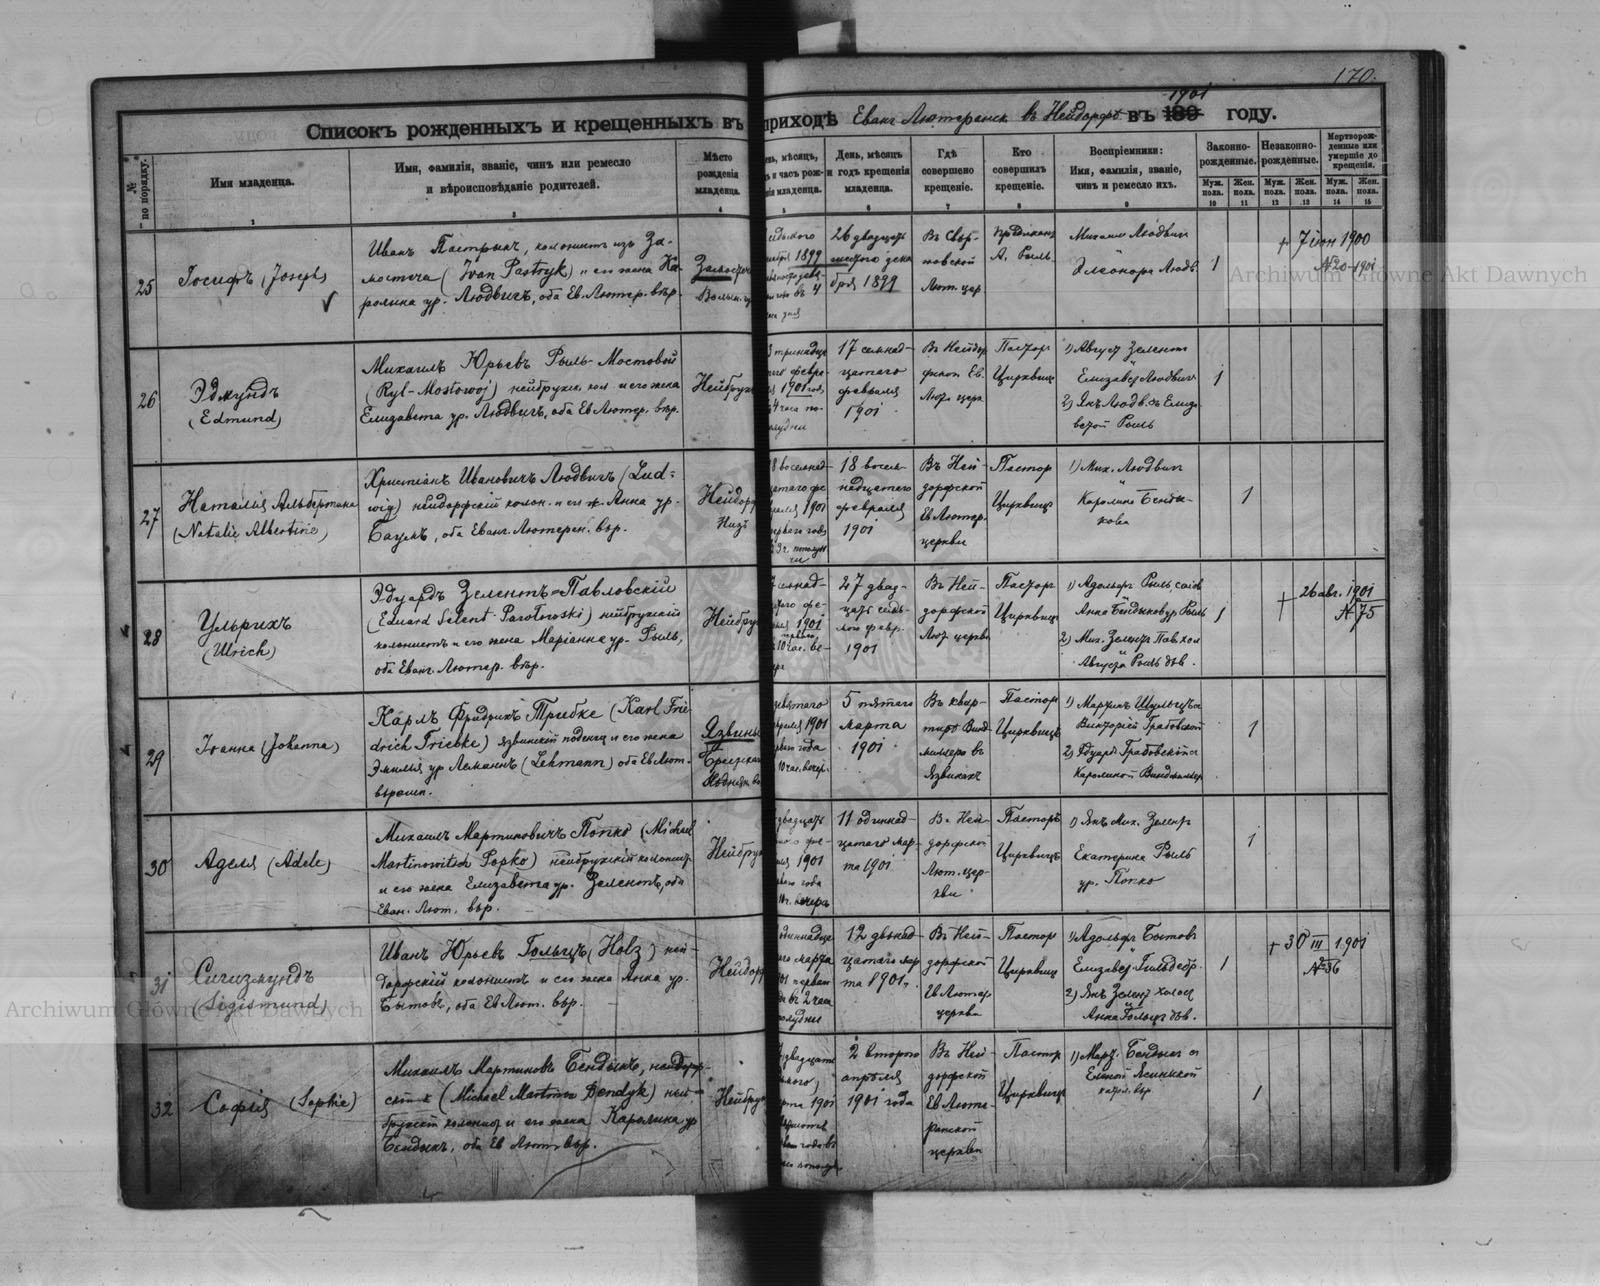 170.
Списокъ рожденныхъ и крещенныхъ въ приходѣ Еванг Лютеранск въ Нейдорфѣ въ 189 1901 году.
№ по порядку.
Имя младенца.
Имя, фамилія, званіе, чинъ или ремесло
и вѣроисповѣданіе родителей.
Мѣсто
рожденія
младенца.
День, мѣсяцъ
и годъ крещенія
младенца.
Гдѣ
совершено
крещеніе.
Кто
совершилъ
крещеніе.
Воспріемники:
Имя, фамилія, званіе,
чинъ и ремесло ихъ.
Законно-
рожденные.
Незаконно-
рожденные.
Мертворож-
денные или
умершіе до
крещенія.
Муж. пола.
Жен. пола.
Муж. пола.
Жен. пола.
Муж. пола.
Жен. пола.
1 2 3 4 5 6 7 8 9 10 11 12 13 14 15
25
Іосифъ (Joseph)
Иванъ Пастрыкъ, колонистъ изъ За-
мостеча (Ivan Pastryk) и его жена Ка-
ролина ур. Людвигъ, оба Ев. Лютер. вѣр.
Замостече
Волын. г.
1899
26 двадцать
шестого дека
бря 1899
Въ Свер-
новской
Лют. цер
А. Рыль
Михаилъ Людвигъ
Элеонора Людв.
1
† 7 іюн 1900
№20-1901
26
Эдмундъ
(Edmund)
Михаилъ Юрьевъ Рыль-Мостовой
(Ryl-Mostowoj) нейбружс. кол и его жена
Елизавета ур. Людвигъ, оба Ев Лютер. вѣр.
Нейбруж
тринадца
того февра-
ля 1901 год
4 часа по-
полудни
17 семнад-
цатаго
февраля
1901
Въ Нейдор
фской Ев.
Лют. церк
Пасторъ
Цирквицъ
1) Августъ Зелентъ
Елизавета Людвигъ
2) Янъ Людв. съ Елиза-
ветой Рыль
1
27
Наталія Альбертина
(Natalie Albertine)
Христіанъ Ивановичъ Людвигъ (Lud=
wig) нейдорфскій колон. и его ж. Анна ур.
Баумъ, оба Еванг Лютерен. вѣр.
Нейдорф
Низъ
8 восемнад-
цатаго фе-
враля 1901
перваго года
18 восем-
надцатаго
февраля
1901
Въ Ней-
дорфской
Ев Лютер.
церкви
Пасторъ
Цирквицъ
1) Мих. Людвигъ
Каролина Бенды-
кова
1
28
Ульрихъ
(Ulrich)
Эдуардъ Зелентъ-Павловскій
(Eduard Selent-Pawlowski) нейбружскій
колонистъ и его жена Маріанна ур. Рыль,
оба Еванг. Лютер. вѣр.
Нейбруж
1901
10 час. ве-
27 двад-
цать седь-
мого февр.
1901
Въ Ней-
дорфской
Лют. церкви
Пасторъ
Цирквицъ
1) Адольфъ Рыль
Анна Бендыковъ ур. Рыль
2) Мих. Зелентъ Пав. кол
Августа Рыль дѣв.
1
† 26 авг. 1901
№75
29
Іоанна (Johanna)
Карлъ Фридрихъ Трибке (Karl Frie
drich Triebke) язвинскій поденщ и его жена
Эмилія ур Леманнъ (Lehmann) оба Ев Лют.
вѣроисп.
Язвины
девятаго
1901
10 час. вечер.
5 пятаго
марта
1901
Въ квар-
тирѣ Винд
миллера въ
Язвинахъ
Пасторъ
Цирквицъ
1) Мартинъ Шульцъ съ
Викторіей Грабовской
2) Эдуардъ Грабовскій съ
Каролиной Виндмиллер
1
30
Аделя (Adele)
Михаилъ Мартиновичъ Попко (Michael
Martinowitsch Popko) нейбружскій колонистъ
и его жена Елизавета ур. Зелентъ, оба
Еван. Лют. вѣр.
Нейбруж
двадцать
1901
вечера
11 одиннад-
цатаго мар-
та 1901
Въ Ней-
дорфской
Лют. цер-
кви
Пасторъ
Цирквицъ
1) Янъ Мих. Зелентъ
Екатерина Рыль
ур. Попко
1
31
Сигизмундъ
(Sigismund)
Иванъ Юрьевъ Гольцъ (Holz) ней-
дорфскій колонистъ и его жена Анна ур.
Бытовъ, оба Ев Лют. вѣр.
Нейдорф
одиннадца
того марта
въ 2 часа
полудни
12 двѣнад-
цатаго мар
та 1901.
Въ Ней-
дорфской
Ев Лютер
церкви
Пасторъ
Цирквицъ
1) Адольфъ Бытовъ
Елизавет. Гильдебр.
2) Янъ Зелентъ холост
Анна Гольцъ дѣв.
1
† 30 III 1901
№36
32
Софія (Sophie)
Михаилъ Мартиновъ Бендыкъ,
(Michael Martinow Bendyk) ней-
бружскій колонист и его жена Каролина ур
Бендыкъ, оба Ев Лют вѣр.
Нейбруж
марта 1901
2 второго
апрѣля
1901 года
Въ Ней-
дорфской
Ев Люте-
ранской
церкви
Пасторъ
Цирквицъ
1) Март. Бендыкъ съ
Еленой Ясинской
1
Archiwum Główne Akt Dawnych
Archiwum Główne Akt Dawnych